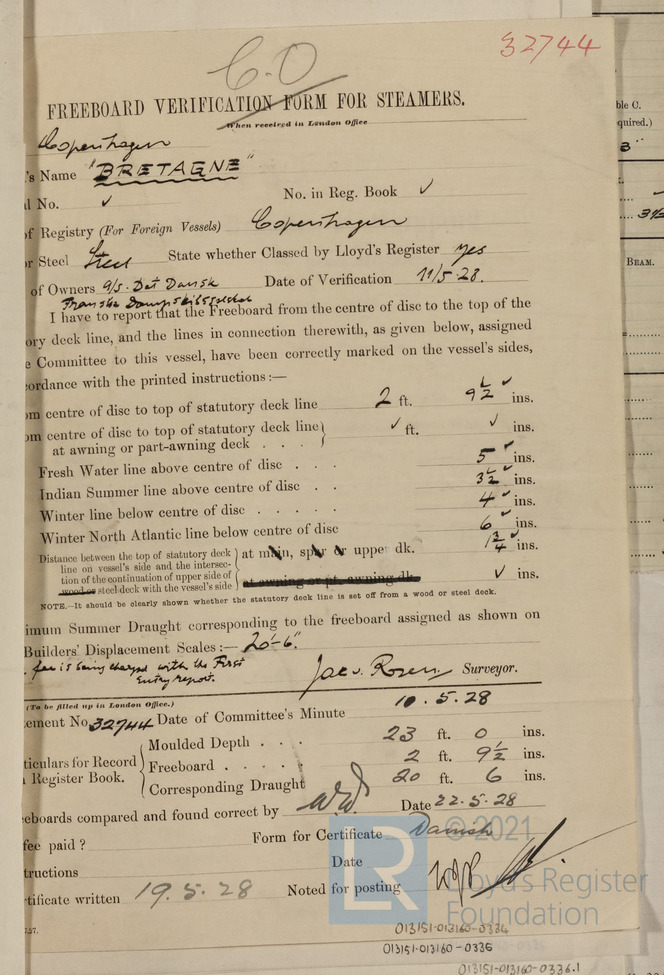 32744
C.O
FREEBOARD VERIFICATION FORM FOR STEAMERS.
When received in London Office
Copenhagen
's Name "BRETAGNE"
l No. ✓ No. in Reg. Book ✓
of Registry (For Foreign Vessels) Copenhagen
or Steel Steel State whether Classed by Lloyd's Register yes
of Owners A/S. Det Dansk Date of Verification 11/5-28.
Franske Dampskibsselskab
I have to report that the Freeboard from the centre of disc to the top of the
ory deck line, and the lines in connection therewith, as given below, assigned
e Committee to this vessel, have been correctly marked on the vessel's sides,
cordance with the printed instructions:—
om centre of disc to top of statutory deck line 2 ft. 9½ ✓ ins.
om centre of disc to top of statutory deck line } ✓ ft. ✓ ins.
at awning or part-awning deck . . .
Fresh Water line above centre of disc . . . 5 ✓ ins.
Indian Summer line above centre of disc . . 3½ ✓ ins.
Winter line below centre of disc . . . . . 4 ✓ ins.
Winter North Atlantic line below centre of disc 6 ✓ ins.
Distance between the top of statutory deck } at main, spar or upper dk. 1¾ ✓ ins.
line on vessel's side and the intersec-
tion of the continuation of upper side of
wood or steel deck with the vessel's side } at awning or pt. awning dk. ✓ ins.
NOTE.—It should be clearly shown whether the statutory deck line is set off from a wood or steel deck.
imum Summer Draught corresponding to the freeboard assigned as shown on
Builders' Displacement Scales:— 20'-6".
fee is being charged with the First
Entry report.
Surveyor.
(To be filled up in London Office.)
ement No 32744 Date of Committee's Minute 10.5.28
ticulars for Record
Register Book.
Moulded Depth . . . 23 ft. 0 ins.
Freeboard . . . . . 2 ft. 9½ ins.
Corresponding Draught 20 ft. 6 ins.
eboards compared and found correct by Date 22.5.28
fee paid ? Form for Certificate Danish
tructions Date
tificate written 19.5.28 Noted for posting
© 2021
LR
Lloyd's Register
Foundation
013151-013160-0334
013151-013160-0336
013151-013160-0336.1
ble C.
quired.)
BEAM.